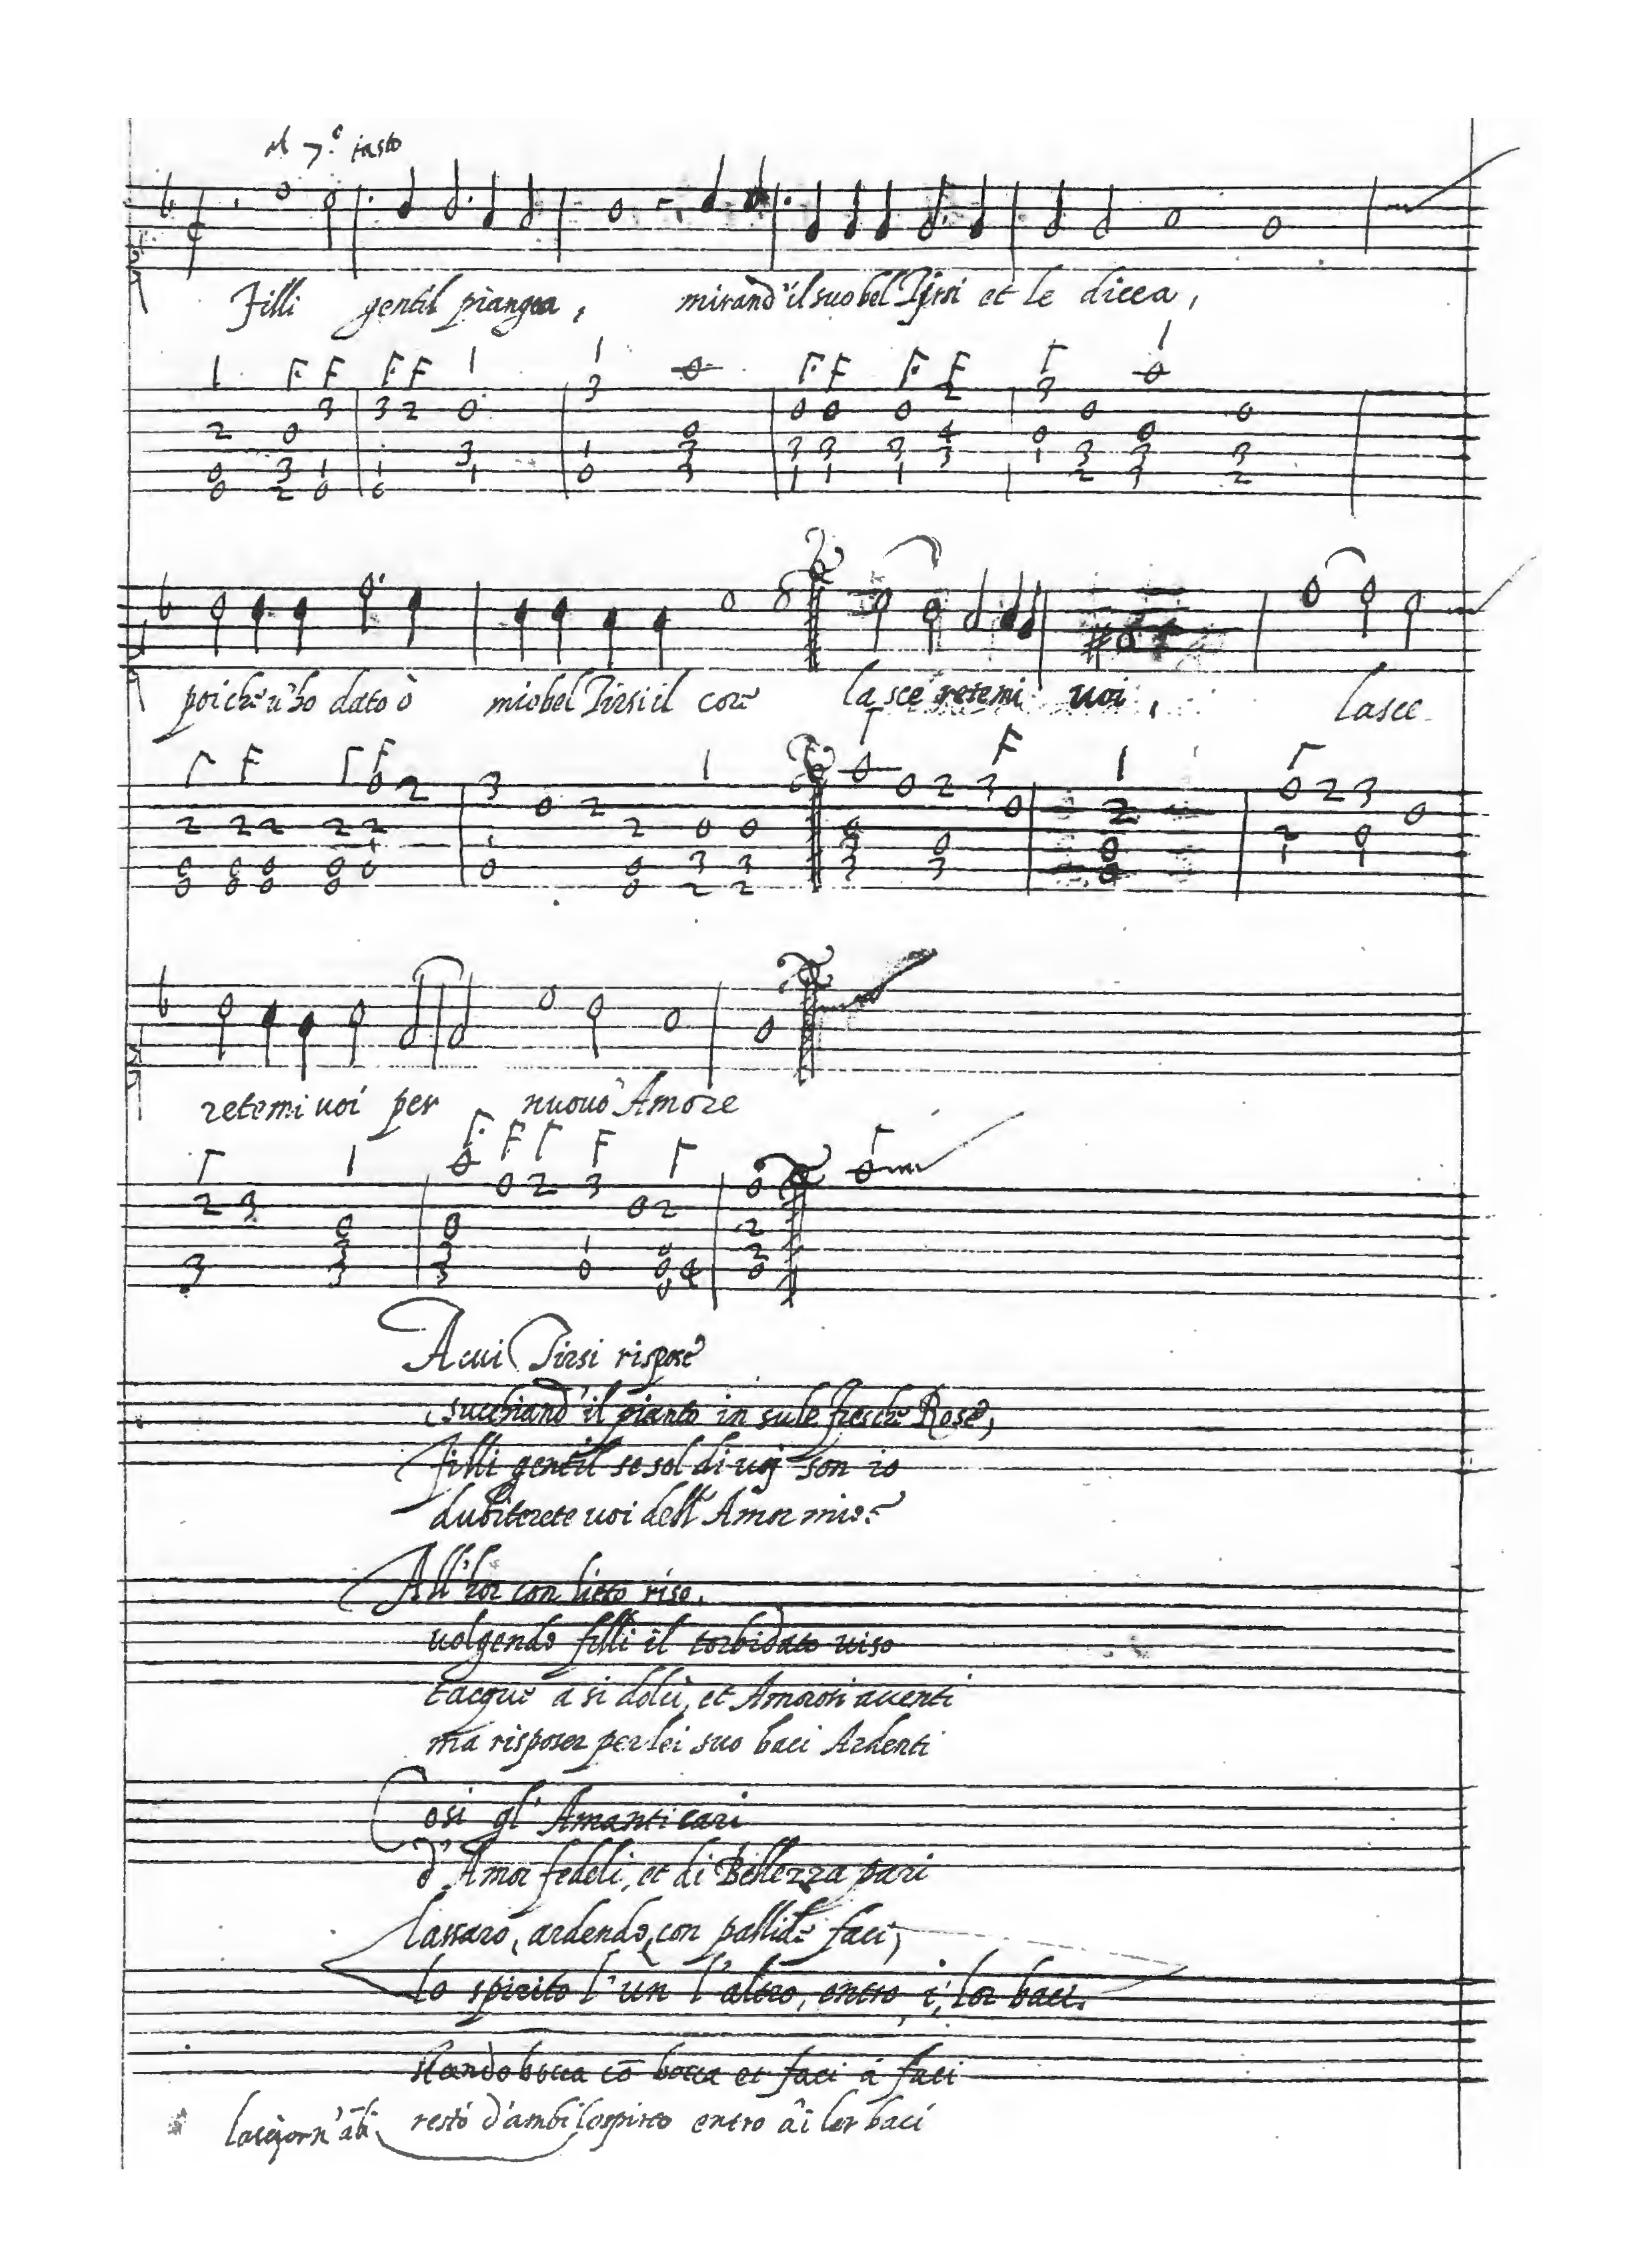 Al 7º tasto
Filli gentil piangea, mirand'il suo bel Tirsi et le dicea,
poiche v'ho dato ò mio bel Tirsi il core lasceretemi voi, lasce
retemi voi per nuovo Amore
A cui Tirsi rispose
succhiand'il pianto in su le fresche Rose,
filli gentil se sol di voi son io
dubiterete voi dell'Amor mio?
All'hor con lieto riso,
volgendo filli il torbidato viso
tacque a si dolci, et Amorosi accenti
ma risposer per lei suo baci Ardenti
Cosi gl'Amanti cari
d'Amor fedeli, et di Bellezza pari
lassaro, ardendo, con pallide faci,
lo spirito l'un l'altro, entro, i, lor baci.
stando bocca cō bocca et faci à faci
restò d'ambi lo spirto entro ài lor baci